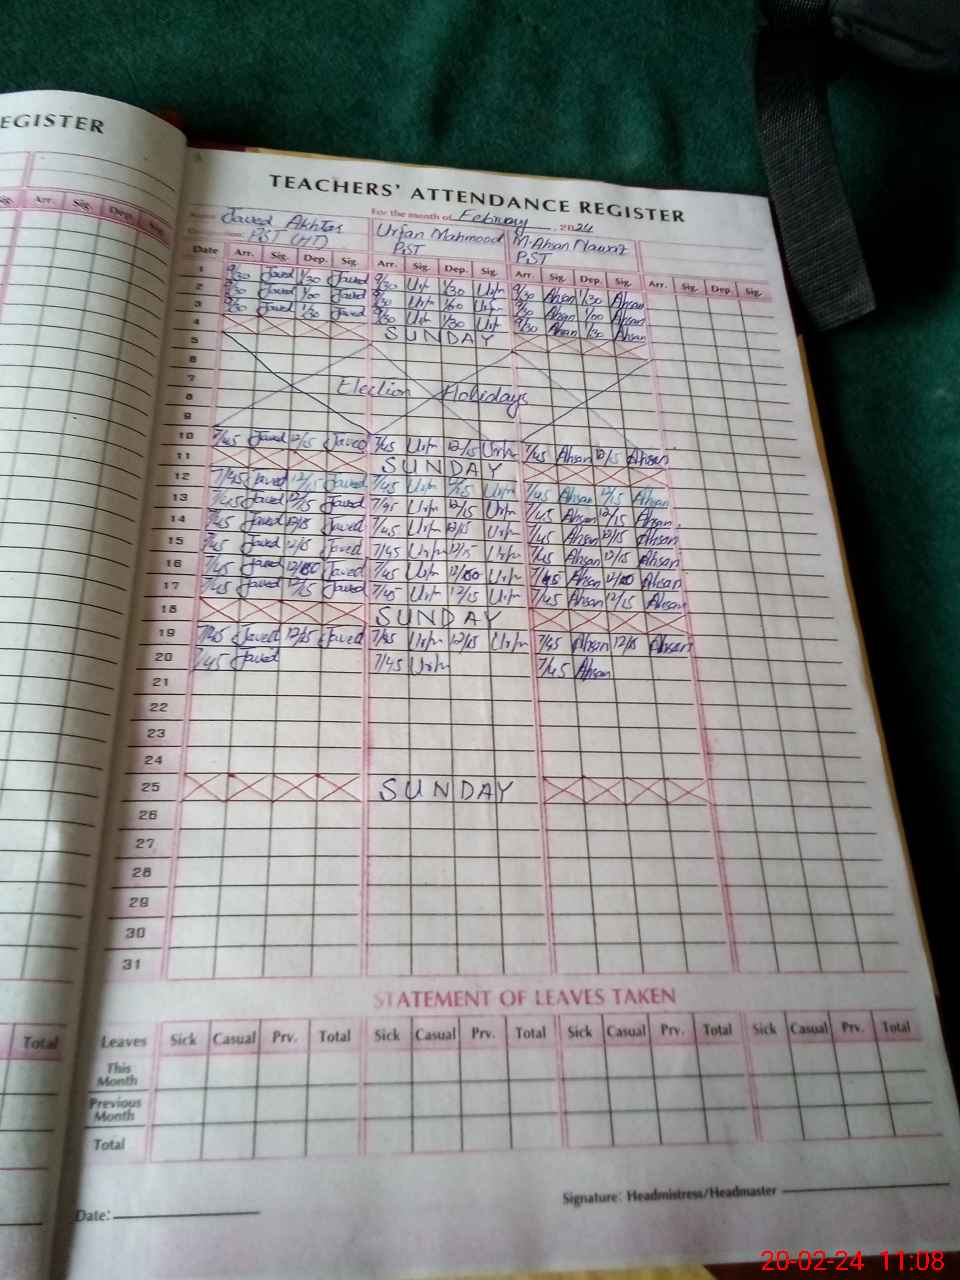 EGISTER
Sig. Arr. Sig. Dep. Sig.
Total
TEACHERS' ATTENDANCE REGISTER
For the month of February 2024
Name Javed Akhter Urfan Mahmood M. Ahsan Nawaz
PST (HT) PST PST
Date Arr. Sig. Dep. Sig. Arr. Sig. Dep. Sig. Arr. Sig. Dep. Sig. Arr. Sig. Dep. Sig.
1 9/30 Javed 1/30 Javed 9/30 Urfn 1/30 Urfn 9/30 Ahsan 1/30 Ahsan
2 9/30 Javed 1/00 Javed 9/30 Urfn 1/00 Urfn 9/30 Ahsan 1/00 Ahsan
3 9/30 Javed 1/30 Javed 9/30 Urfn 1/30 Urfn 9/30 Ahsan 1/30 Ahsan
4 SUNDAY
5
6
7 Election Holidays
8
9
10 7/45 Javed 12/15 Javed 7/45 Urfn 12/15 Urfn 7/45 Ahsan 12/15 Ahsan
11 SUNDAY
12 7/45 Javed 12/15 Javed 7/45 Urfn 12/15 Urfn 7/45 Ahsan 12/15 Ahsan
13 7/45 Javed 12/15 Javed 7/45 Urfn 12/15 Urfn 7/45 Ahsan 12/15 Ahsan
14 7/45 Javed 12/15 Javed 7/45 Urfn 12/15 Urfn 7/45 Ahsan 12/15 Ahsan
15 7/45 Javed 12/15 Javed 7/45 Urfn 12/15 Urfn 7/45 Ahsan 12/15 Ahsan
16 7/45 Javed 12/00 Javed 7/45 Urfn 12/00 Urfn 7/45 Ahsan 12/00 Ahsan
17 7/45 Javed 12/15 Javed 7/45 Urfn 12/15 Urfn 7/45 Ahsan 12/15 Ahsan
18 SUNDAY
19 7/45 Javed 12/15 Javed 7/45 Urfn 12/15 Urfn 7/45 Ahsan 12/15 Ahsan
20 7/45 Javed 7/45 Urfn 7/45 Ahsan
21
22
23
24
25 SUNDAY
26
27
28
29
30
31
STATEMENT OF LEAVES TAKEN
Leaves Sick Casual Prv. Total Sick Casual Prv. Total Sick Casual Prv. Total Sick Casual Prv. Total
This Month
Previous Month
Total
Signature: Headmistress/Headmaster
Date:
20-02-24 11:08